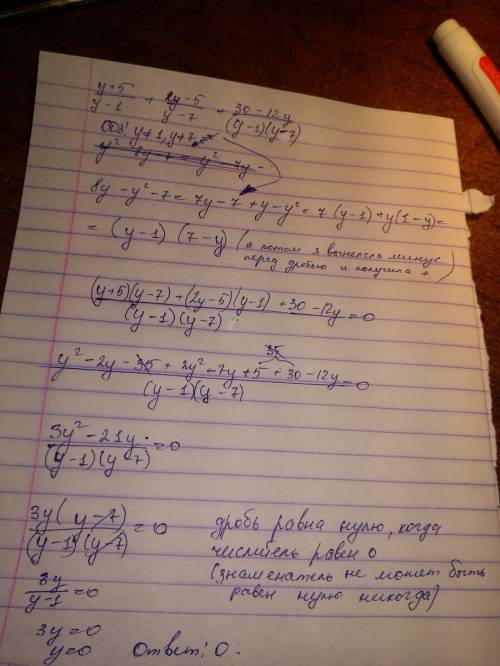 y+5/y-1 + 2y-5/y-7 + 30-12y/(y-1)(y-7)
ОДЗ: y≠1, y≠7
y² - 8y + 7 = y² - 7y -
8y - y² - 7 = 7y - 7 + y - y² = 7(y-1) + y(1-y) =
= (y-1)(7-y) (а потом я вынесла минус перед дробью и получила +)
(y+5)(y-7) + (2y-5)(y-1) + 30 - 12y / (y-1)(y-7) = 0
35
y² - 2y - 35 + 2y² - 7y + 5 + 30 - 12y / (y-1)(y-7) = 0
3y² - 21y / (y-1)(y-7) = 0
3y(y-7) / (y-1)(y-7) = 0
дробь равна нулю, когда
числитель равен 0
(знаменатель не может быть
равен нулю никогда)
3y/y-1 = 0
3y = 0
y = 0 Ответ: 0.